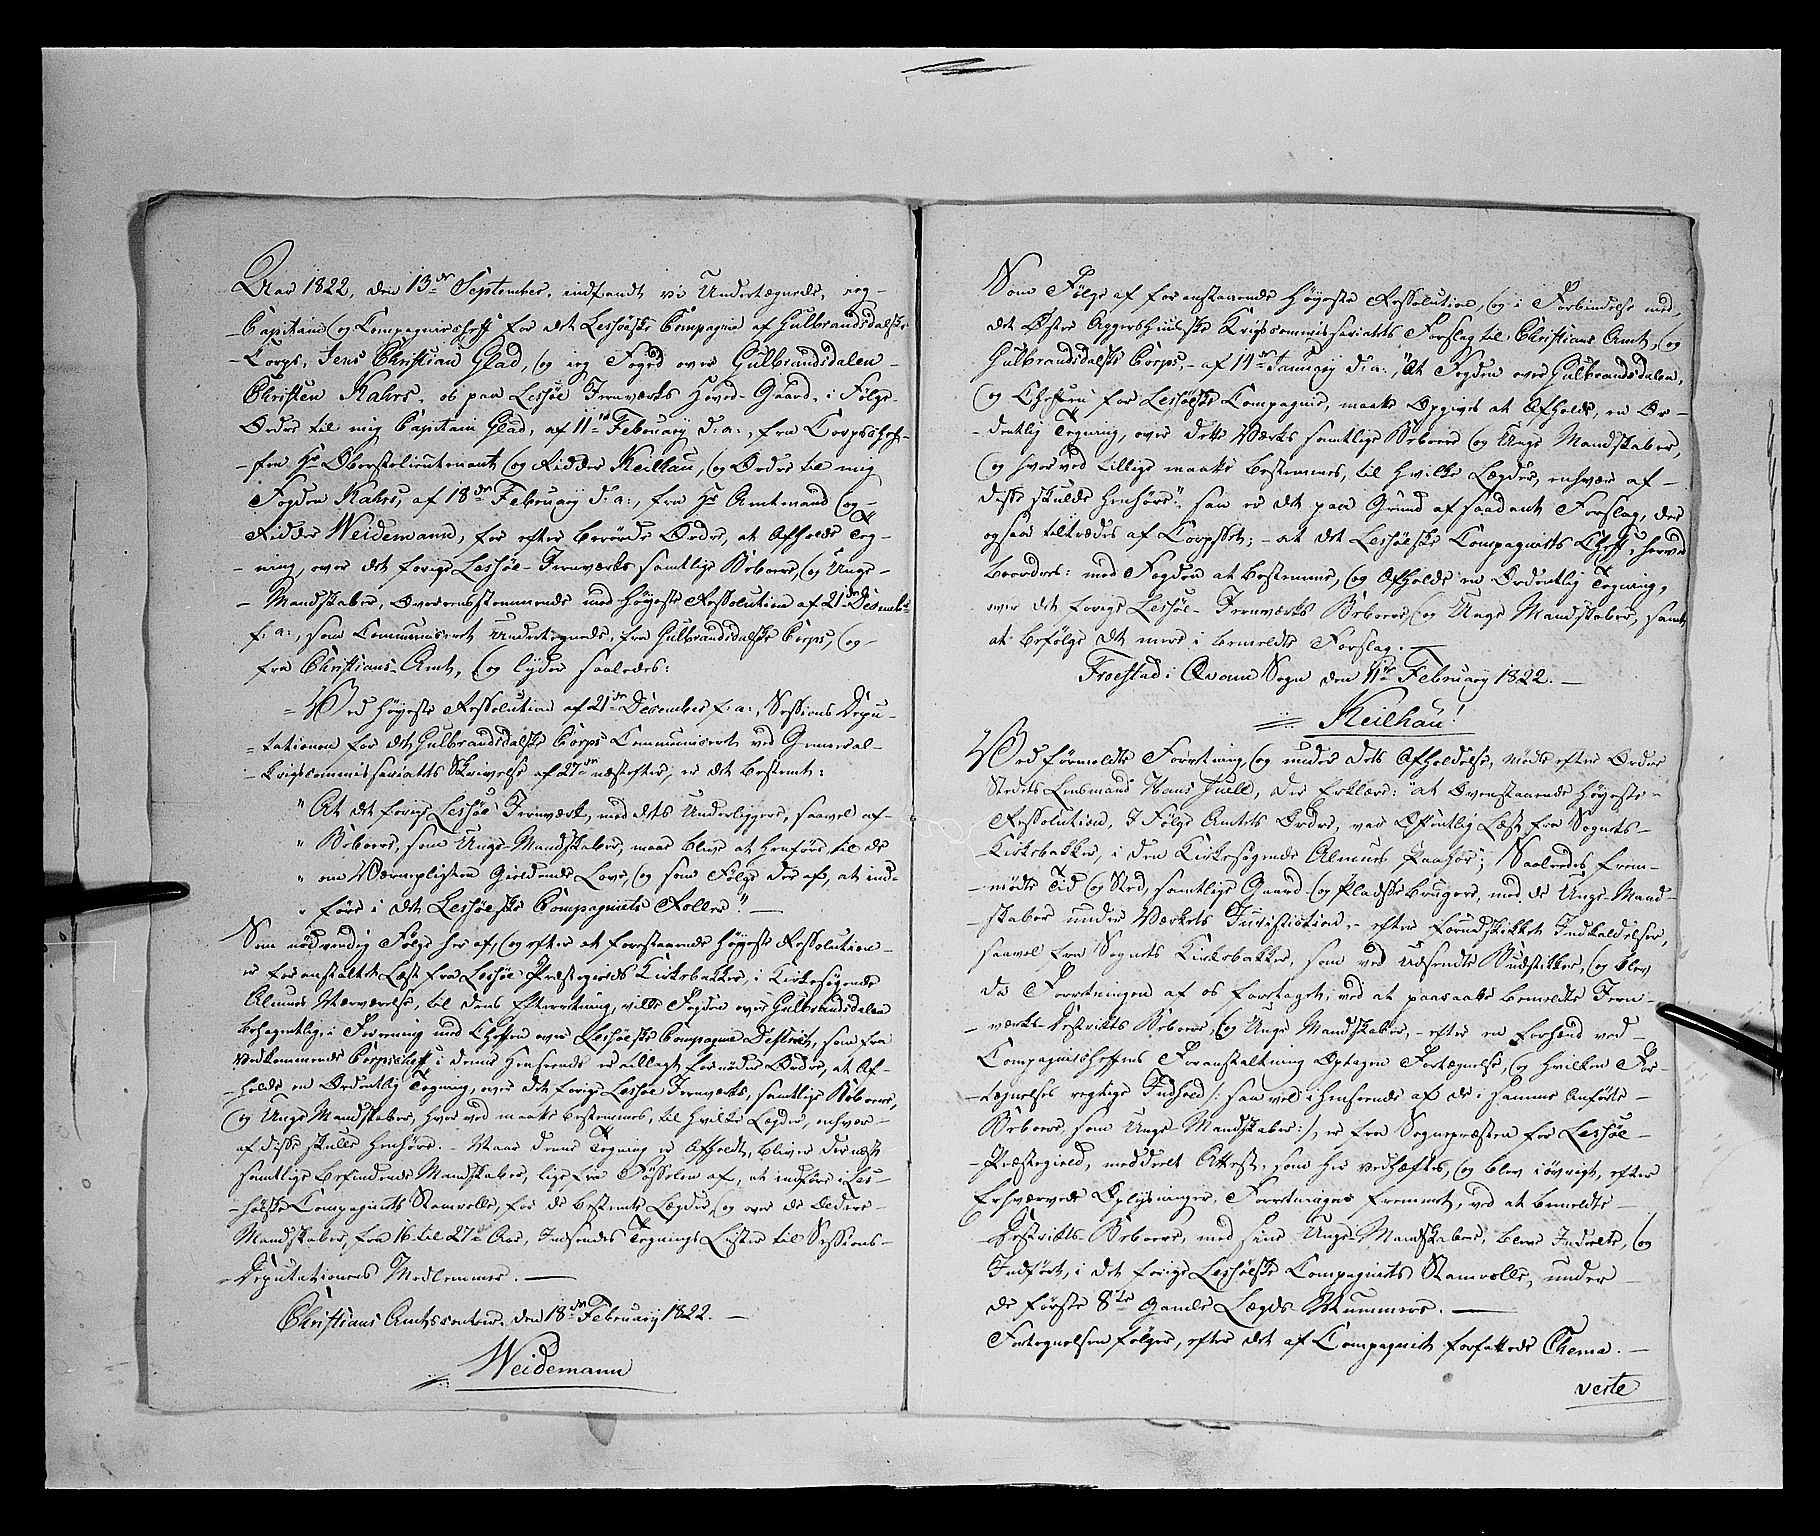 Aar 1822, den 13de September, indfandt vi Undertegnede, jeg
Capitain og Compagniecheff for det Lessøeske Compagnie af Gulbrandsdalske
Corps, Jens Christian Glad, og jeg Foged over Gulbrandsdalen
Christen Kahrs, os paa Lessøe Jernværks Hoved-Gaard, i Følge
Ordre til mig Capitain Glad, af 11te February d: a:, fra Corpschef-
fen Hr Oberstlieutenant og Ridder Keilhau, og Ordre til mig
Fogden Kahrs, af 18de February d: a:, fra Hr Amtmand og
Ridder Weidemann, for efter berørde Ordre, at Afholde Teg-
ning, over det forige Lessøe-Jernværks samtlige Beboere, og Unge-
Mandskaber, Overeensstemmende med Høyeste Ressolution af 21de Decembr
f: a:, som Communiceret Undertegnede, fra Gulbrandsdalske Corps, og
fra Christians-Amt, og lyder saaledes:
"Ved Høyeste Ressolution af 21de December f: a:, Sessions Depu-
tationen for det Gulbrandsdalske Corps Communiceret ved General-
Krigscommissariatets Skrivelse af 27de næstefter, er det Bestemt:
" At det forige Lessøe Jernværk, med dets Underliggere, saavel af
" Beboere, som Unge-Mandskaber, maae blive at henføre til de
" om Værnepligten Gieldende Love, og som Følge der af, at ind-
" føre i det Lessøeske Compagniets Roller". —
Som nødvendig Følge her af, og efter at forestaaende Høyeste Ressolution
er foranstaltet Læst fra Lessøe Præstegields Kirkebakke, i Kirkesøgende
Almues Nærværelse, til dens Efterretning, vilde Fogden over Gulbrandsdalen
behagentlig, i Forening med Cheffen over Lessøeske Compagnie District, som fra
vedkommende Corpschef i denne Henseende er tillagt fornøden Ordre, at Af-
holde en Ordentlig Tegning, over det forige Lessøe Jernværks, samtlige Beboere,
og Unge Mandskaber, hvor ved maatte bestemmes, til hvilke Lægder, enhver
af disse skulle Henhøre. Naar denne Tegning er Afholdt, bliver dernæst
samtlige Befindende Mandskaber, lige fra Fødselen af, at indføre i Les-
søeske Compagniets Stamrolle, for de bestemte Lægder, og over de Ældere
Mandskaber, fra 16 til 27de Aar, Indsendes Tegnings Lister til Sessions-
Deputationens Medlemmer. —
Christians Amtscontoir, den 18de February 1822. —
Weidemann
Som Følge af foranstaaende Høyeste Ressolution, og i Forbindelse med
det Øster Aggershuusiske Krigscommissariatets Forslag til Christians Amt, og
Gulbrandsdalske Corps, af 14de January d: a:, "At Fogden over Gulbrandsdalen,
og Cheffen for Lessøeske Compagnie, maatte Opgives at Afholde, en Or-
dentlig Tegning, over dette Værks samtlige Beboere og Unge Mandskaber,
og hvorved tillige maatte bestemmes, til hvilke Lægder, enhver af
disse skulde henhøre", saa er det paa Grund af saadant Forslag, der
ogsaa tiltrædes af Corpset, – at det Lessøeske Compagniets Cheff, herved
beordres: med Fogden at bestemme, og Afholde en Ordentlig Tegning,
over det forige Lessøe-Jernværks Beboere, og Unge Mandskaber, samt
at Befølge det mere i bemeldte Forslag. —
Froestad i Qvam Sogn den 11te February 1822. —
Keilhau!
Ved Formeldte Forretning, og under dets Afholdelse, mødte efter Ordre
Stedets Lensmand Hans Juell, der Erklærer: "at Ovenstaaende Høyeste
Ressolution, I Følge Amtets Ordre, var Offentlig Læst fra Sognets
Kirkebakke, i den Kirkesøgende Almues Paahør"; Saaledes frem-
mødte Tid og Sted, samtlige Gaard- og Pladsebrugere, med de Unge-Mand-
skaber under Værkets Jurisdiction, – efter forudskikket Indkaldelse,
saavel fra Sognets Kirkebakke, som ved udsendte Budstikke, og blev
da Forretningen af os foretaget, ved at paasatte bemeldte Jern-
værks-Destrikts Beboere, og Unge Mandskaber, – efter en forhend ved
Compagniecheffens Foranstaltning Optagen Fortegnelse, og hvilken For-
tegnelses regtige Indhold /: saavel i Henseende af de i samme Anførte
Beboere, som Unge-Mandskaber :/, er fra Sognepræsten for Lessøe-
Præstegield, meddeelt Attest, som her vedhæftes, og blev i øvrigt, efter
Erhvervede Oplysninger, Forretningen fremmet, ved at bemeldte
Destrikts-Beboere, med sine Unge-Mandskaber, bleve Indeelte, og
Indført, i det forige Lessøeske Compagniets Stamrolle, under
de første 8te Gamle Lægds-Nummere. —
Fortegnelsen følger, efter det af Compagniet forfattede Schema. —
verte